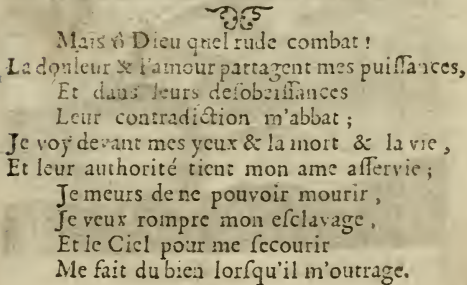 Mais ô Dieu quel rude combat !
La douleur & l'amour partagent mes puiſſances,
Et dans leurs deſobeiſſances
Leur contradiction m'abbat ;
Je voy devant mes yeux & la mort & la vie ,
Et leur authorité tient mon ame aſſervie ;
Je meurs de ne pouvoir mourir ,
Je veux rompre mon eſclavage ,
Et le Ciel pour me ſecourir
Me fait du bien lorſqu'il m'outrage.